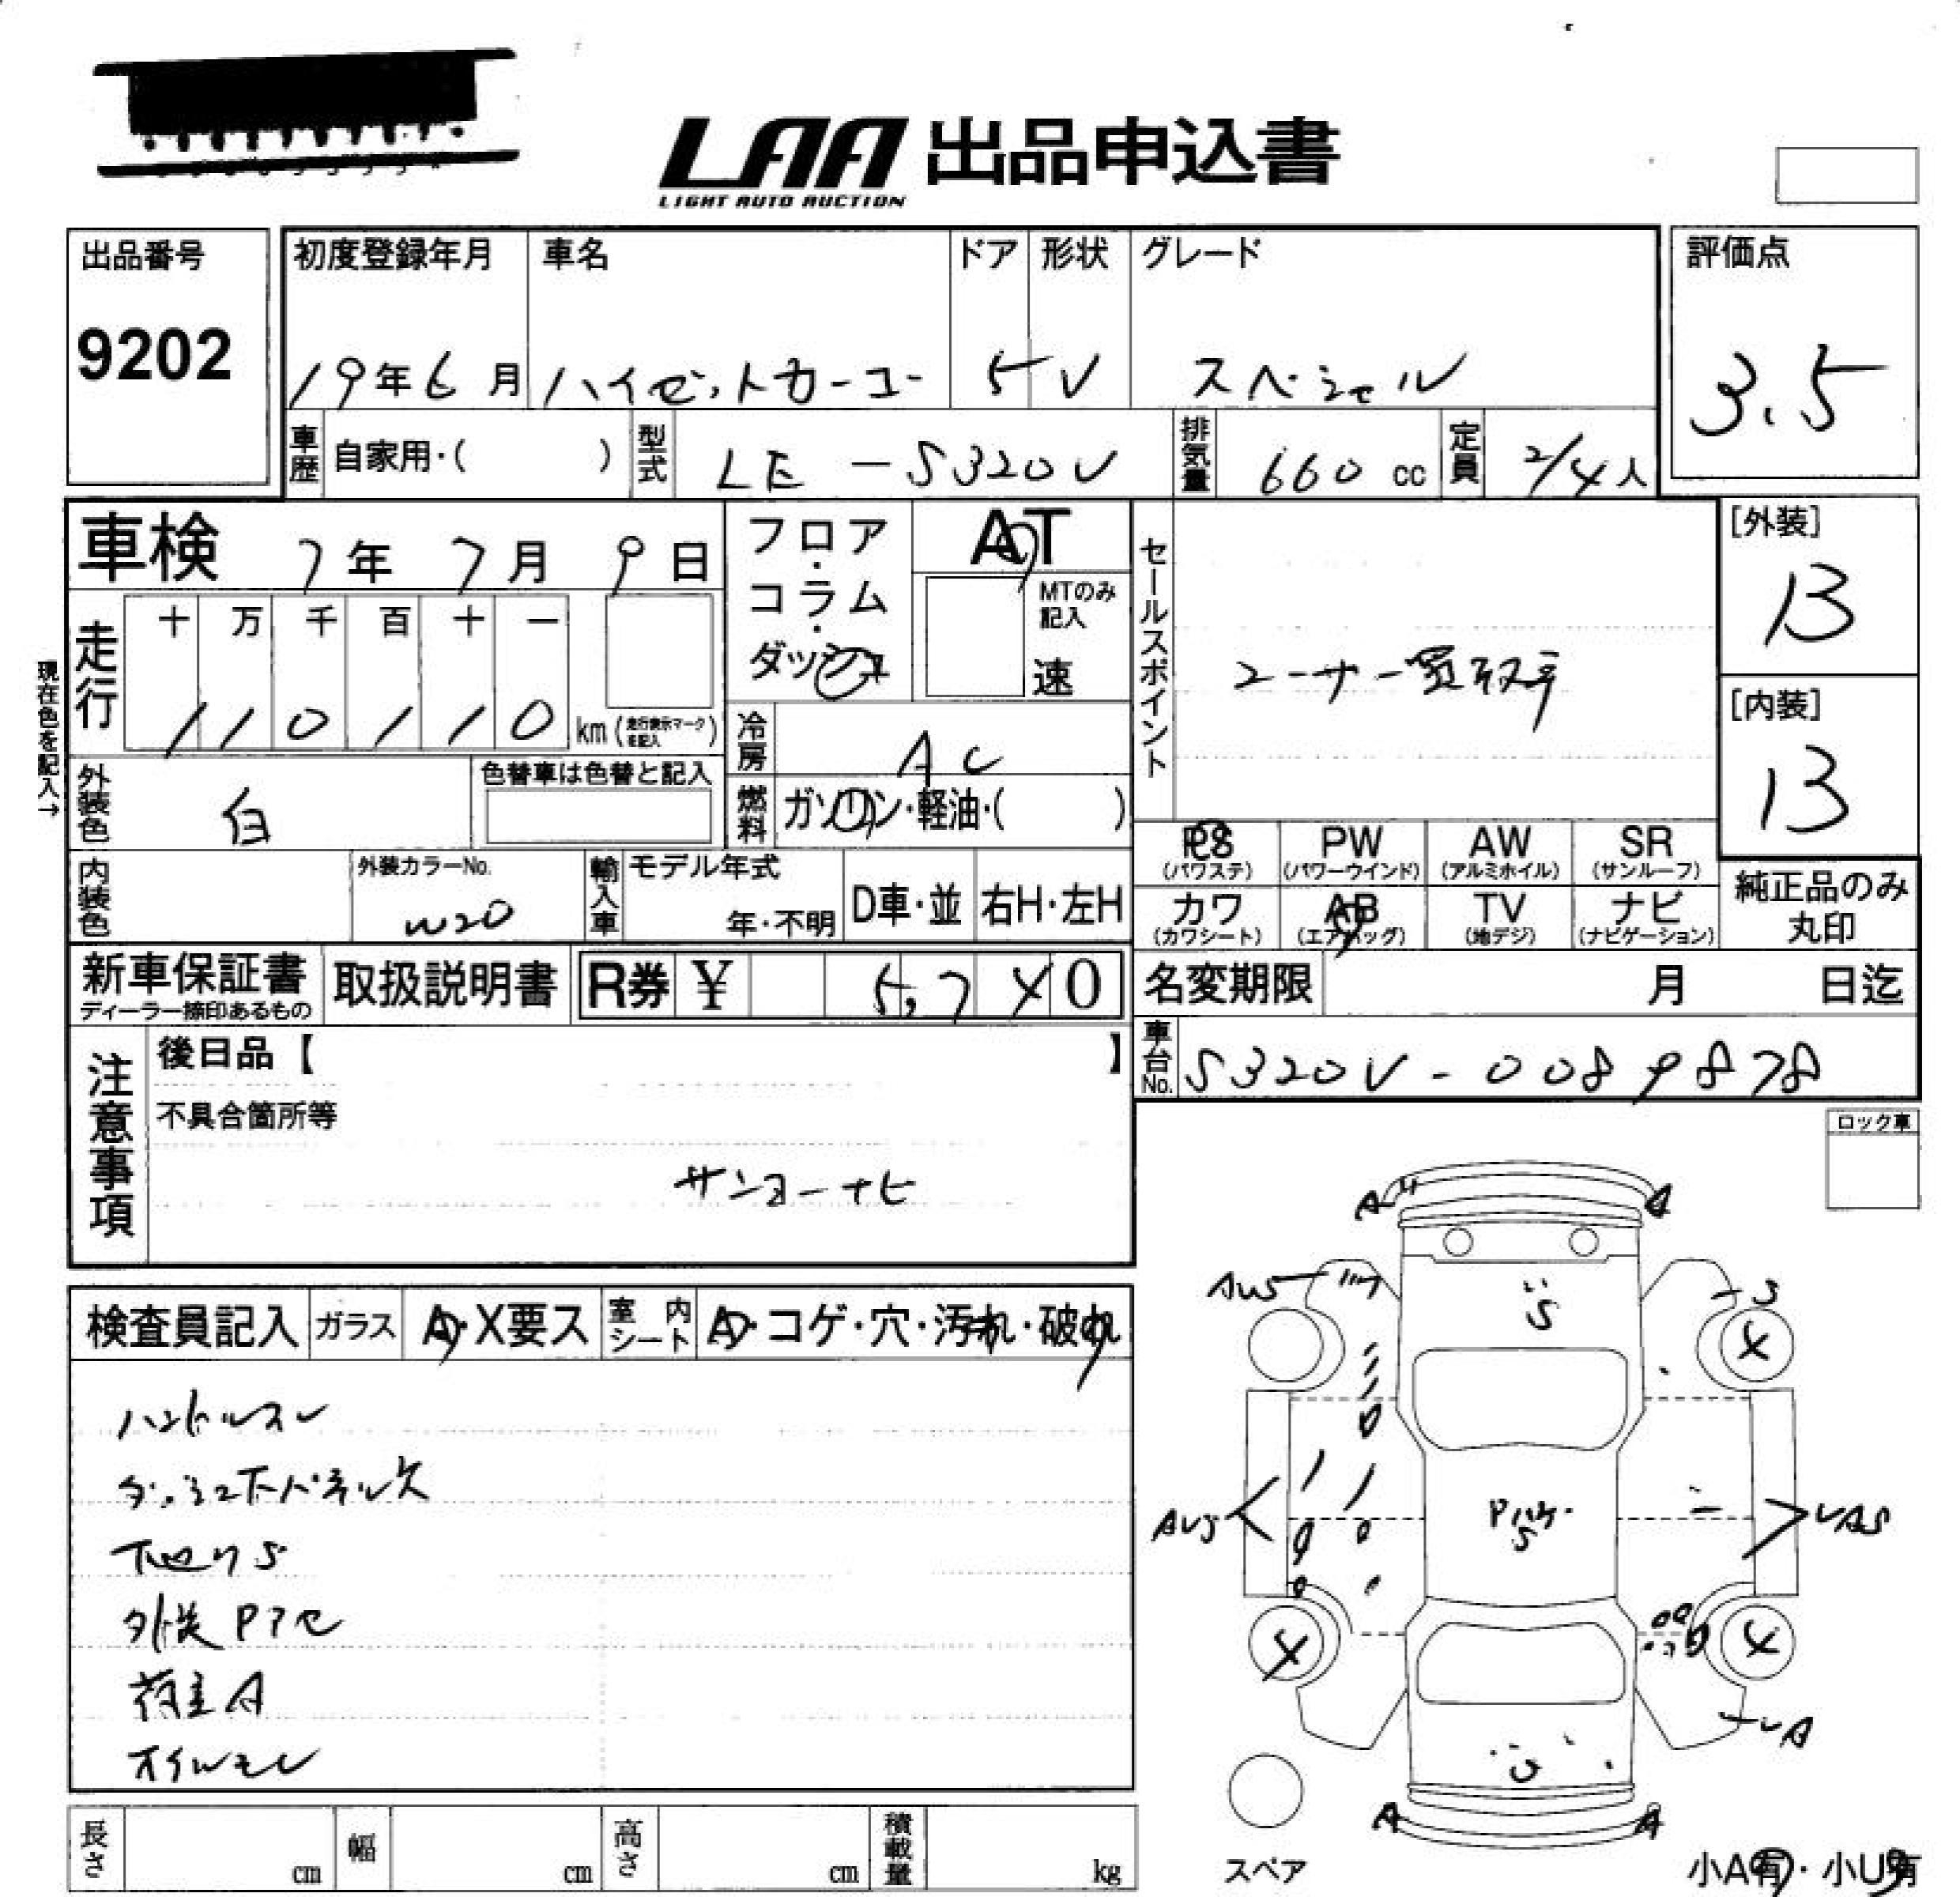 LAA 出品申込書
LIGHT AUTO AUCTION
出品番号 初度登録年月 車名 ドア 形状 グレード 評価点
9202 19年6月 ハイゼットカーゴー 5 V スペシャル 3.5
車歴 自家用・( ) 型式 LE-S320V 排気量 660 cc 定員 2/4人
車検 7年 7月 9日 フロア・コラム・ダッシュ AT [外装]
13
MTのみ記入
速
現在色を記入→
走行 十 万 千 百 十 一
1 1 0 1 1 0 km (走行表示マークを記入)
セールスポイント ユーザー買取車
[内装]
13
冷房 AC
外装色 白 色替車は色替と記入
燃料 ガソリン・軽油・( )
PS (パワステ) PW (パワーウインド) AW (アルミホイル) SR (サンルーフ)
カワ (カワシート) AB (エアバッグ) TV (地デジ) ナビ (ナビゲーション)
純正品のみ
丸印
内装色 外装カラーNo. W20 輸入車 モデル年式 年・不明 D車・並 右H・左H
新車保証書 取扱説明書 R券 ¥ 5,7 0 名変期限 月 日迄
ディーラー捺印あるもの
車台No. S320V-0089878
注意事項 後日品【 】
不具合箇所等
サンヨーナビ
ロック車
検査員記入 ガラス A・X要ス 室内シート A・コゲ・穴・汚れ・破れ
ハンドルスレ
ダッシュ下パネル欠
下廻りS
外装Pアセ
荷室A
オイルモレ
A A
AUS S S
AUS Pハゲ S UAS
UA
U
A A
スペア
小A有・小U有
長さ cm 幅 cm 高さ cm 積載量 kg